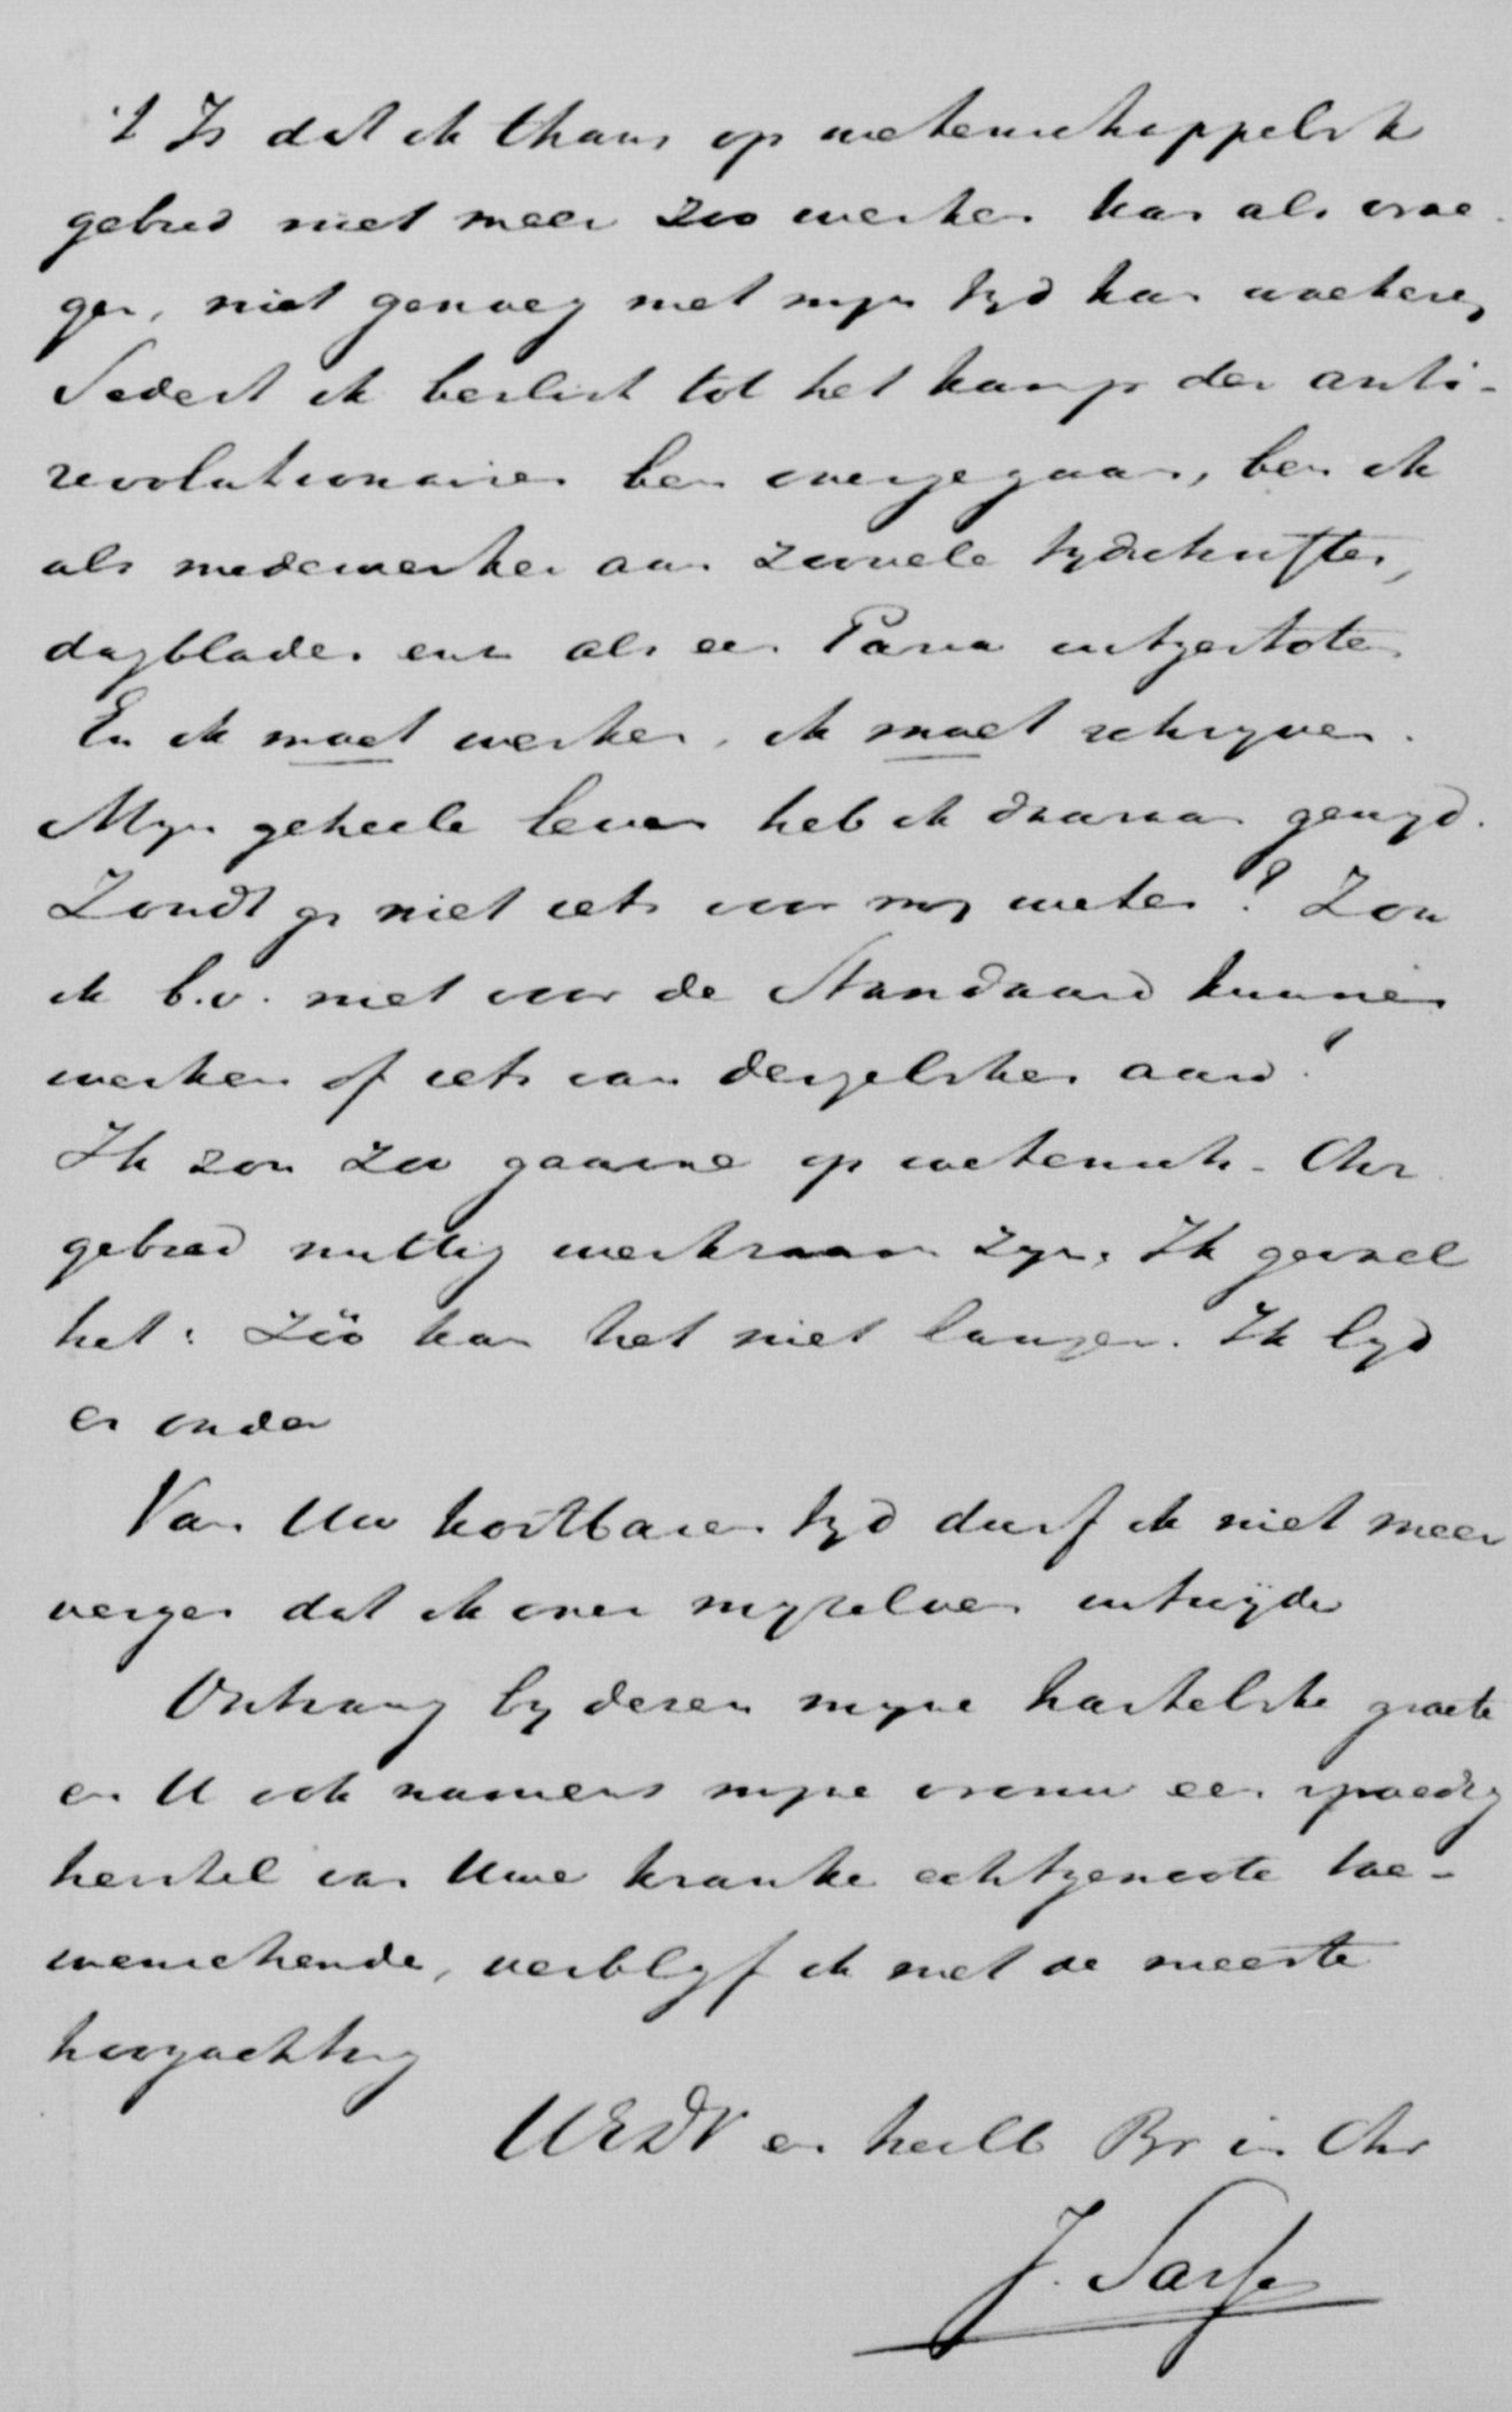 't Is dat ik thans op wetenschappelijk
gebied niet meer zoo werken kan als vroe-
ger, niet genoeg met mijn tijd kan woekeren,
Sedert ik beslist tot het kamp der anti-
revolutionairen ben overgegaan, ben ik
als medewerker aan zoovele tijdschriften,
dagbladen enz als een Paria uitgestoten
En ik moet werken, ik moet schrijven.
Mijn geheele leven heb ik daaraan gewijd.
Zoudt gij niet iets voor mij weten? Zou
ik b.v. niet voor de Standaard kunnen
werken of iets van dergelijken aard?
Ik zou zoo gaarne op wetensch. Chr
gebied nuttig werkzaam zijn. Ik gevoel
het: zóó kan het niet langer. Ik lijd
er onder
Van Uw kostbaren tijd durf ik niet meer
vergen dat ik over mijzelven uitwijde
Ontvang bij dezen mijne hartelijke groete
en U ook namens mijne vrouw een spoedig
herstel van Uwe kranke echtgenoote toe-
wenschende, verblijf ik met de meeste
hoogachting
UEDV en heilb Br in Chr
J.